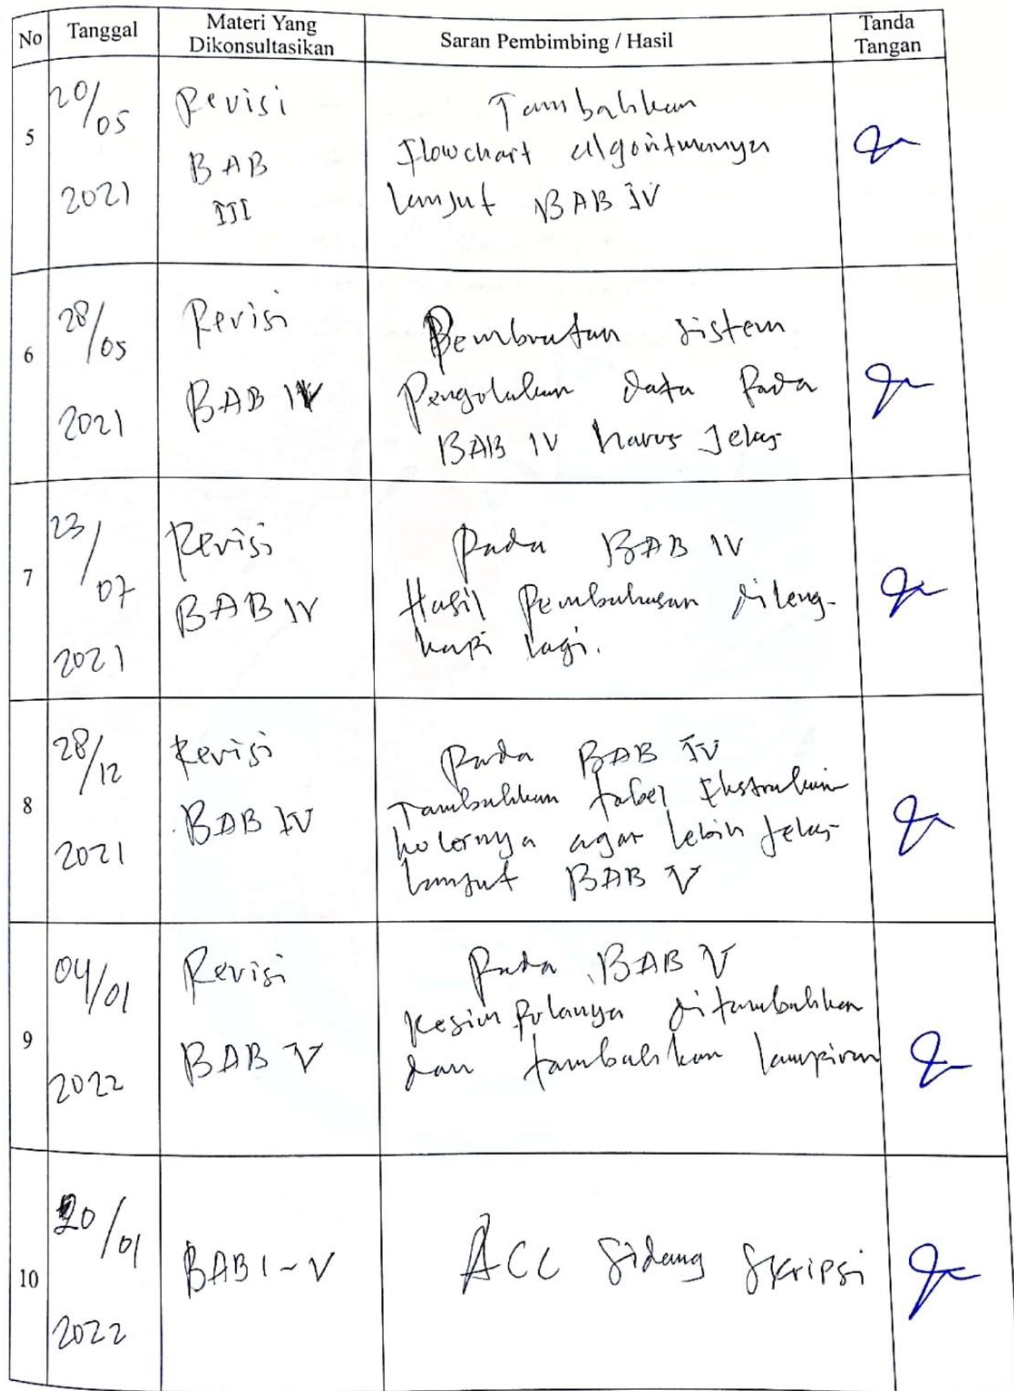 No Tanggal Materi Yang Dikonsultasikan Saran Pembimbing / Hasil Tanda Tangan
5
20/05
2021
Revisi
BAB
III
Tambahkan
Flowchart algoritmanya
lanjut BAB IV
6
28/05
2021
Revisi
BAB IV
Pembuatan sistem
Pengolahan data Pada
BAB IV harus Jelas
7
23/07
2021
Revisi
BAB IV
Pada BAB IV
Hasil Pembahasan dileng-
kapi lagi.
8
28/12
2021
Revisi
BAB IV
Pada BAB IV
Tambahkan tabel
agar lebih jelas
lanjut BAB V
9
04/01
2022
Revisi
BAB V
Pada BAB V
Kesimpulanya ditambahkan
dan tambahkan lampiran
10
20/01
2022
BAB I - V
ACC Sidang Skripsi